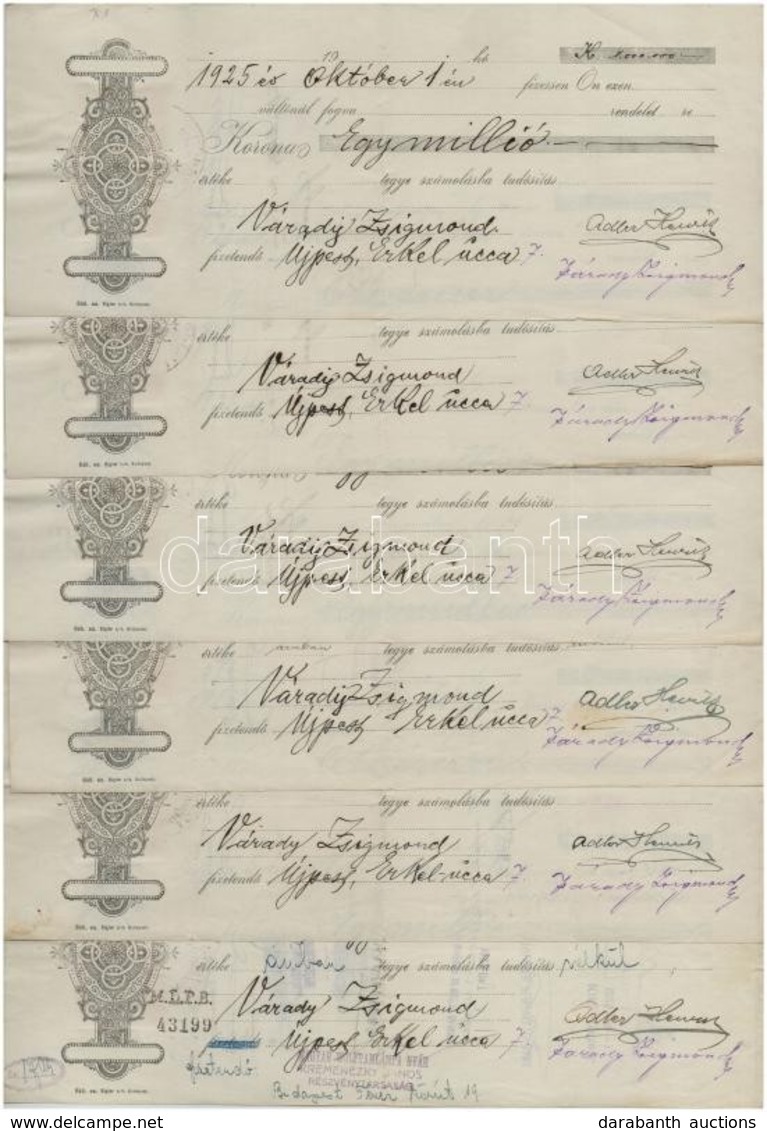 19 hó K 1.000.000
1925 év Október 1 én fizessen Ön ezen
váltónál fogva rendelet re
Korona Egy millió
értéke tegye számolásba tudósítás
Várady Zsigmond. Adler Henrik
fizetendő Újpest, Erkel ucca 7. Várady Zsigmond
értéke tegye számolásba tudósítás
Várady Zsigmond Adler Henrik
fizetendő Újpest, Erkel ucca 7 Várady Zsigmond
értéke tegye számolásba tudósítás
Várady Zsigmond Adler Henrik
fizetendő Újpest, Erkel ucca 7 Várady Zsigmond
darabanth
értéke áruban tegye számolásba tudósítás
Várady Zsigmond Adler Henrik
fizetendő Újpest Erkel ucca 7 Várady Zsigmond
értéke tegye számolásba tudósítás
Várady Zsigmond Adler Henrik
fizetendő Újpest, Erkel-ucca 7. Várady Zsigmond
értéke áruban tegye számolásba tudósítás nélkül
M.L.F.B.
43199
Várady Zsigmond Adler Henrik
fizetendő Újpest, Erkel ucca 7 Várady Zsigmond
fizetendő
KREMENEZKY JÁNOS
RÉSZVÉNYTÁRSASÁG
Budapest Teréz Körút 19
www.darabanth.com darabanth auctions